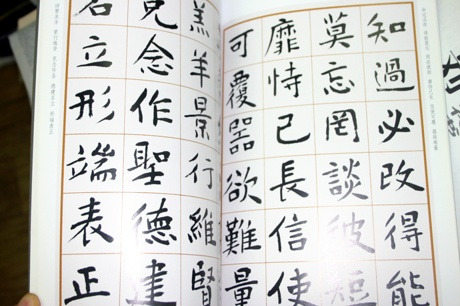 知過必改得能
莫忘罔談彼短
靡恃己長信使
可覆器欲難量
羔羊景行維賢
克念作聖德建
名立形端表正